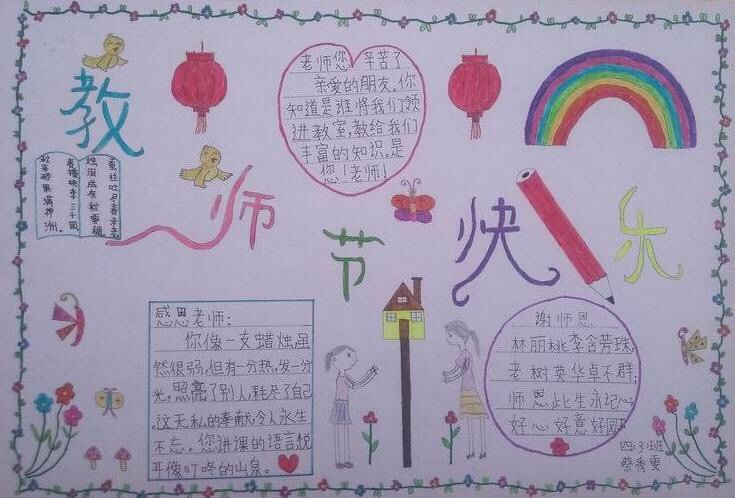 教师节快乐
老师您辛苦了
亲爱的朋友,你
知道是谁将我们领
进教室,教给我们
丰富的知识。是
您!老师!
蚕丝吐尽春未老
烛泪成灰秋更稠
春播桃李三千圃
秋来硕果满神洲。
感恩老师:
你像一支蜡烛,虽
然很弱,但有一分热,发一分
光,照亮了别人,耗尽了自己
,这无私的奉献,令人永生
不忘。您讲课的语言,悦
耳像叮咚的山泉。
谢师恩
林丽桃李含芳珠,
老树英华卓不群,
师恩此生永记心
好心好意好园
四.3班
蔡秀雯